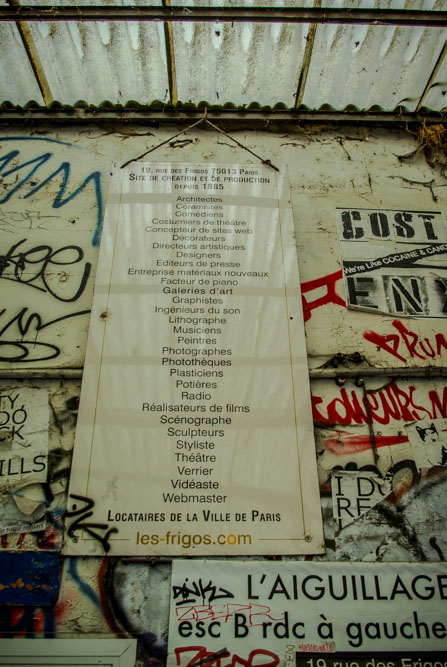 19, rue des Frigos 75013 Paris
Site de création et de production
depuis 1985
Architectes
Céramistes
Comédiens
Costumiers de théâtre
Concepteur de sites web
Décorateurs
Directeurs artistiques
Designers
Editeurs de presse
Entreprise matériaux nouveaux
Facteur de piano
Galeries d'art
Graphistes
Ingénieurs du son
Lithographe
Musiciens
Peintres
Photographes
Photothèques
Plasticiens
Potières
Radio
Réalisateurs de films
Scénographe
Sculpteurs
Styliste
Théâtre
Verrier
Vidéaste
Webmaster
Locataires de la Ville de Paris
les-frigos.com
COST
We're Like COCAINE & CAND
ENV
I DO
RE
L'AIGUILLAGE
esc B rdc à gauche
19 rue des Frigos